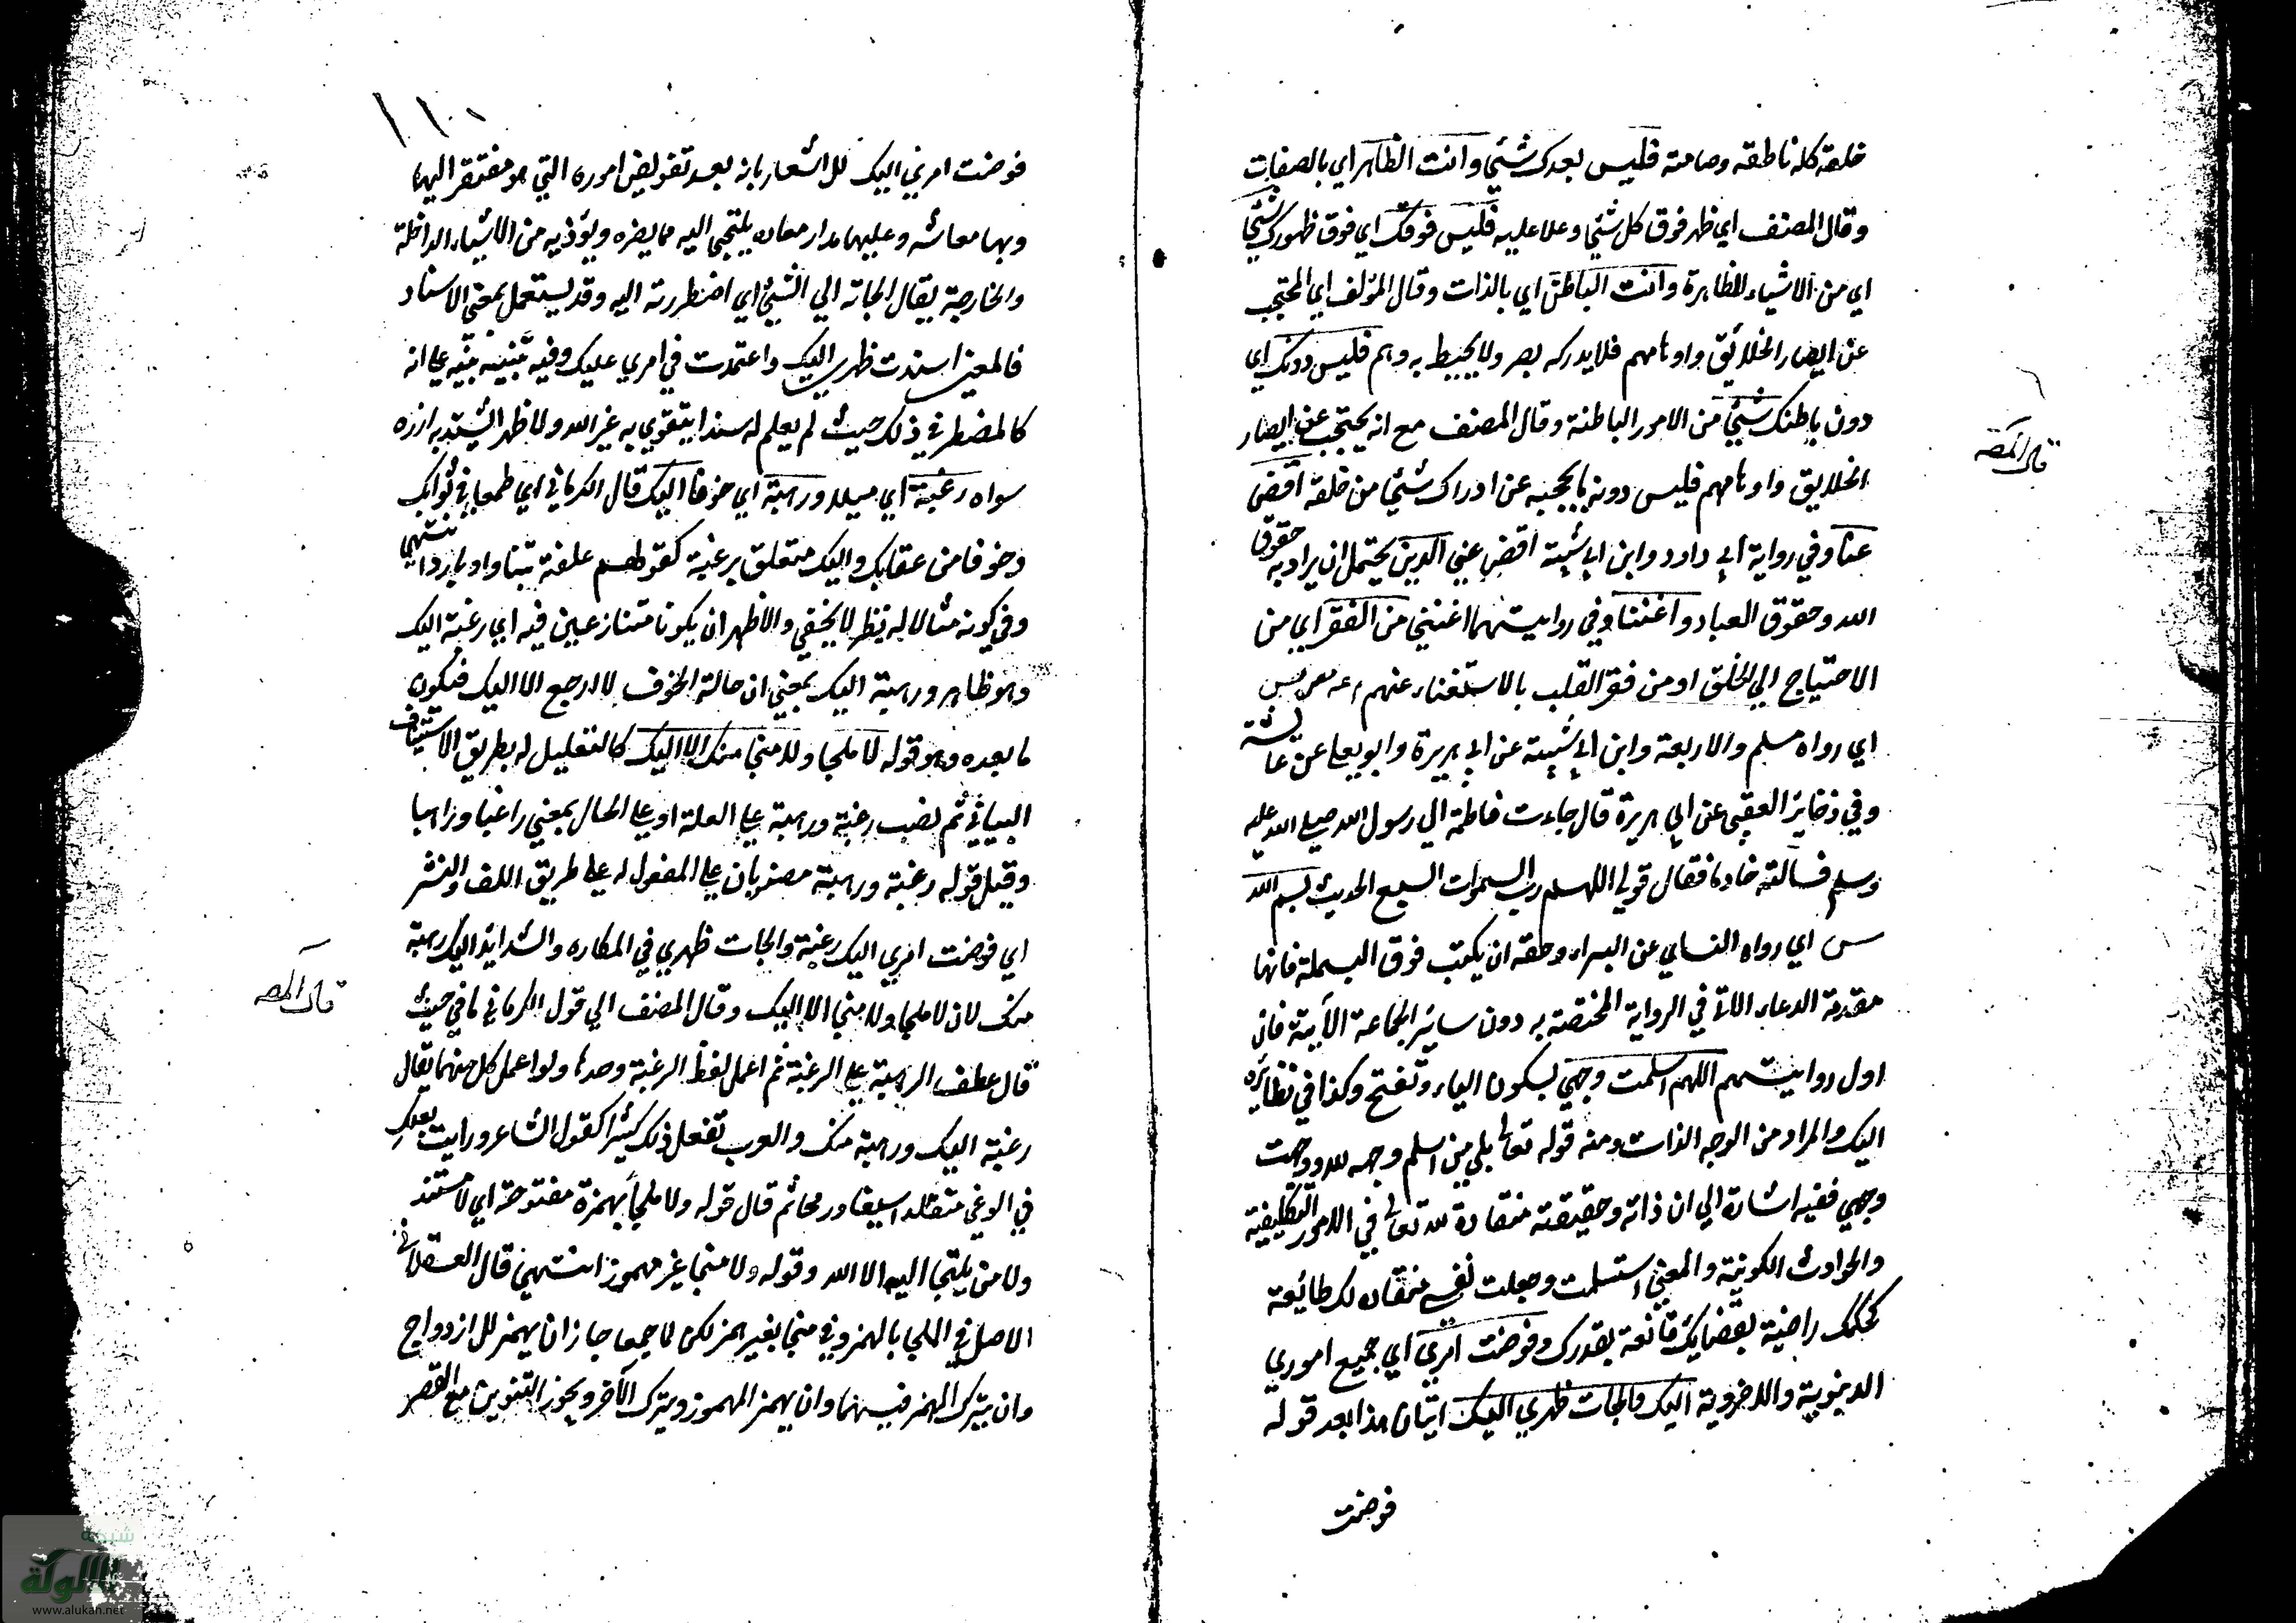 خلقه كله ناطقه وصامته فليس بعدك شيئ وانت الظاهر اي بالصفات
وقال المصنف اي ظهر فوق كل شيئ وعلا عليه فليس فوقك اي فوق ظهورك شيئ
اي من الاشياء الظاهرة وانت الباطن اي بالذات وقال المؤلف اي المحتجب
عن ابصار الخلائق واوهامهم فلا يدركه بصر ولا يحيط به وهم فليس دونك اي
دون باطنك شيئ من الامور الباطنة وقال المصنف مع انه يحتجب عن ابصار
الخلايق واوهامهم فليس دونه ما يحجبه عن ادراك شيئ من خلقه اقض
عنا وفي رواية ابي داود وابن ابي شيبة اقض عني الدين يحتمل ان يراد به حقوق
الله وحقوق العباد واغننا وفي روايتهما اغنني من الفقر اي من
الاحتياج الي الخلق او من فقر القلب بالاستغناء عنهم م عه مص
اي رواه مسلم والاربعة وابن ابي شيبة عن ابي هريرة وابو يعلي عن عائشة
وفي ذخاير العقبي عن ابي هريرة قال جاءت فاطمة الي رسول الله صلي الله عليه
وسلم فسالته خادما فقال قولي اللهم رب السموات السبع الحديث بسم الله
س اي رواه النساي عن البراء وحقه ان يكتب فوق البسملة فانها
مقدمة الدعاء الاتي في الرواية المختصة به دون ساير الجماعة الآتية فان
اول روايتهم اللهم اسلمت وجهي بسكون الياء وتفتح وكذا في نظائره
اليك والمراد من الوجه الذات ومنه قوله تعالي بلي من اسلم وجهه لله ووجهت
وجهي ففيه اشارة الي ان ذاته وحقيقته منقادة لله تعالي في الامور التكليفية
والحوادث الكونية والمعني استسلمت وجعلت نفسي منقاده لك طائعة
لحكمك راضية بقضايك قانعة بقدرك وفوضت امري اي جميع اموري
الدنيوية والاخروية اليك والجات ظهري اليك اتيان هذا بعد قوله
فوضت
قال المصه
فوضت امري اليك للاشعار بانه بعد تفويض اموره التي هو مفتقر اليها
وبها معاشه وعليها مدار معاده يلتجي اليه مما يضره ويؤذيه من الاشياء الداخلة
والخارجة يقال الجاته الي الشيئ اي اضطررته اليه وقد يستعمل بمعني الاسناد
فالمعني اسندت ظهري اليك واعتمدت في امري عليك وفيه تنبيه نبيه علي انه
كالمضطر في ذلك حيث لم يعلم له سندا يتقوي به غير الله ولا ظهرا يشتد به ازره
سواه رغبة اي ميلا ورهبة اي خوفا اليك قال الكرماني اي طمعا في ثوابك
وخوفا من عقابك واليك متعلق برغبة كقولهم علفته تبنا وماء باردا انتهي
وفي كونه مثالا له نظر لا يخفي والاظهر ان يكونا متنازعين فيه اي رغبة اليك
وهو ظاهر ورهبة اليك بمعني ان حالة الخوف لا ارجع الا اليك فيكون
ما بعده وهو قوله لا ملجا ولا منجا منك الا اليك كالتعليل له بطريق الاستيناف
البياني ثم نصب رغبة ورهبة علي العلة او علي الحال بمعني راغبا وراهبا
وقيل قوله رغبة ورهبة منصوبان علي المفعول له علي طريق اللف والنشر
اي فوضت امري اليك رغبة والجات ظهري في المكاره والشدايد اليك رهبة
منك لانه لا ملجا ولا منجي الا اليك وقال المصنف الي قول الكرماني ما في حيث
قال عطف الرهبة علي الرغبة ثم اعمل لفظ الرغبة وحدها ولو اعمل كل منهما يقال
رغبة اليك ورهبة منك والعرب تفعل ذلك كثيرا كقول الشاعر ورايت بعلك
في الوغي متقلدا سيفا ورمحا ثم قال قوله ولا ملجأ بهمزة مفتوحة اي لا مستند
ولا من يلتجا اليه الا الله وقوله ولا منجا غير مهموز انتهي قال العسقلاني
الاصل في الملجا بالهمز وفي منجا بغير همز لكن لما جمعا جاز ان يهمز للازدواج
وان يترك الهمز فيهما وان يهمز المهموز ويترك الآخر ويجوز التنوين مع القصر
قال المصه
شبكة
الألوكة
www.alukah.net